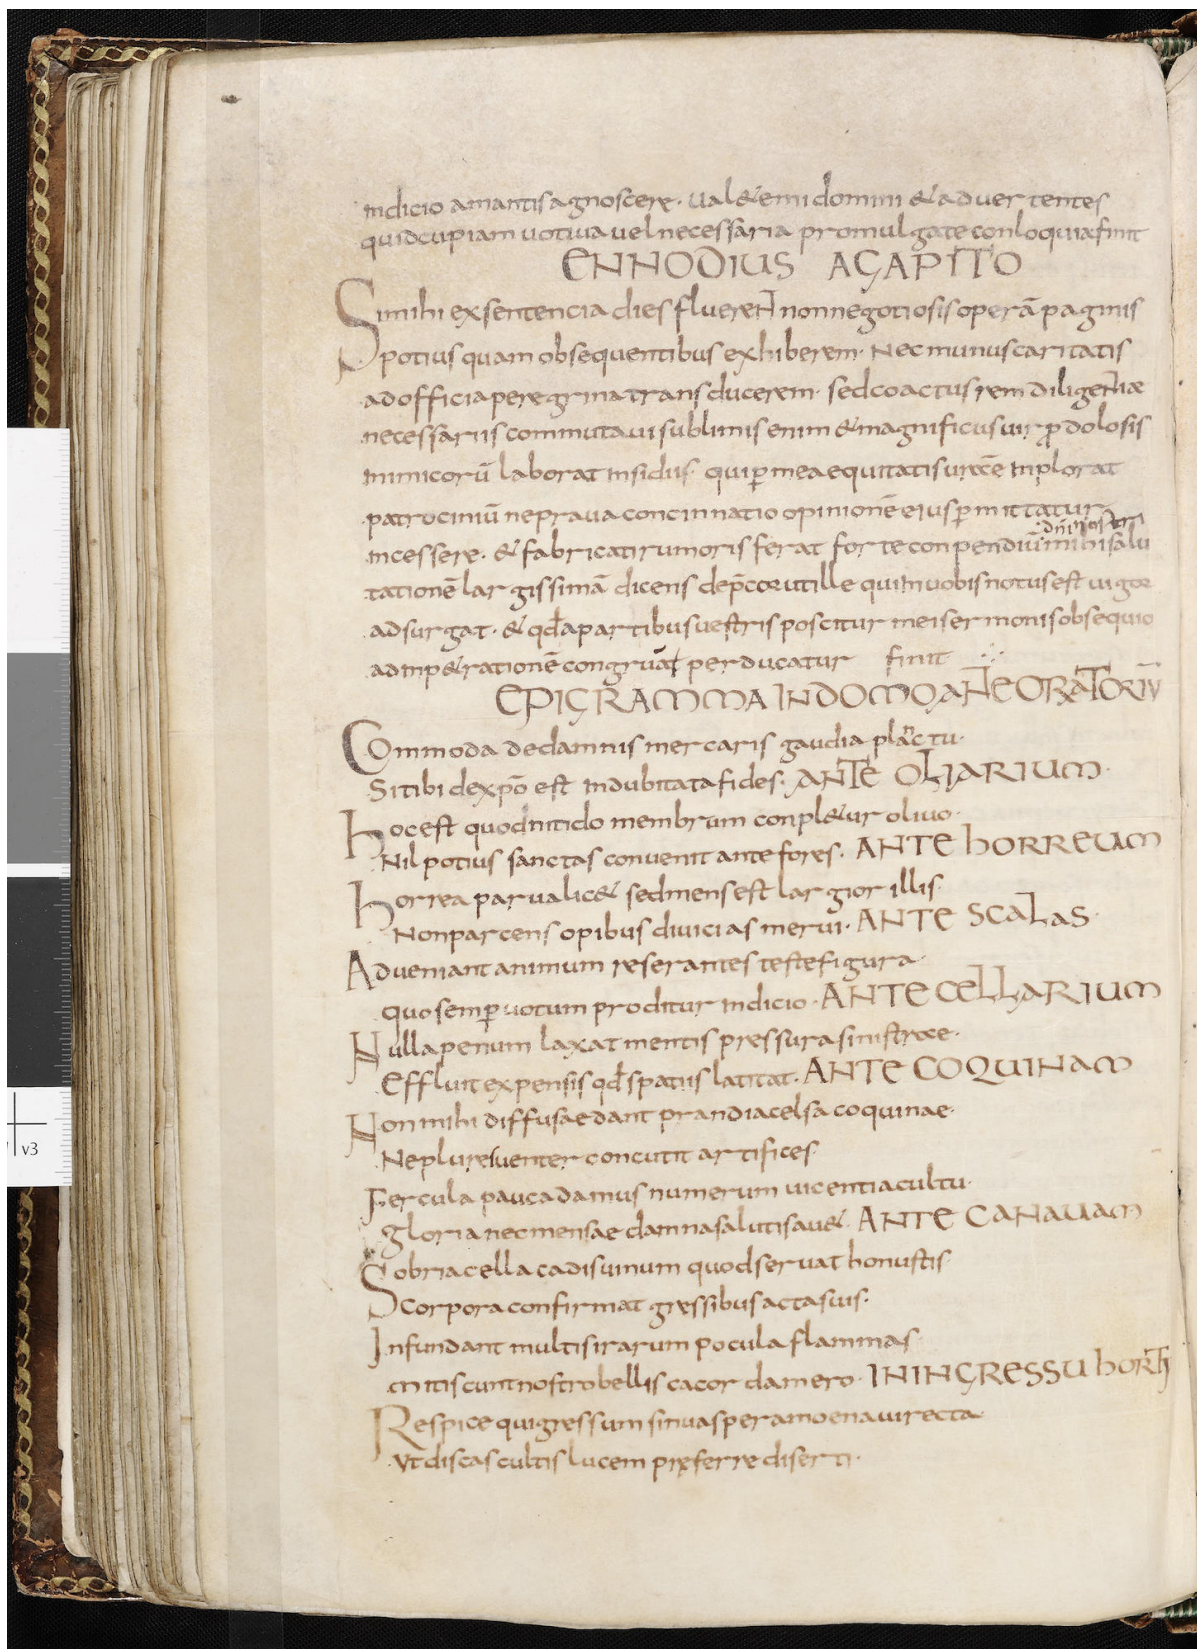 indicio amantis agnoscere. ual&e mi domini & aduertentes
quid cupiam uotiua uel necessaria promulgate conloquia finit
ENNODIUS AGAPITO
Si mihi ex sentencia dies fluerent non negotiosis operā paginis
potius quam obsequentibus exhiberem. Nec munus caritatis
ad officia peregrina transducerem. sed coactus rem diligentiæ
necessariis commutaui sublimis enim & magnificus uir ꝓ dolosis
inimicorū laborat insidiis. qui ꝑ me aequitatis urǣ inplorat
patrociniū ne praua concinnatio opinionē eius ꝑmittatur
incessere. & fabricati rumoris ferat forte conpendiū mihi salu
tationē largissimā dicens dep̄cor ut ille qui in uobis notus est uigor
adsurgat. & qđ a partibus uestris poscitur mei sermonis obsequio
ad inp&rationē congruāt perducatur finit
EPIGRAMMA IN DOMO ANTE ORATORIŪ
Commoda de damnis mercaris gaudia planctu.
Si tibi de xp̄o est indubitata fides. ANTE OLIARIUM.
Hoc est quod nitido membrum conpl&ur oliuo.
Nil potius sanctas conuenit ante fores. ANTE HORREUM
Horrea parua lic& sed mens est largior illis.
Non parcens opibus diuicias merui. ANTE SCALAS.
Adueniant animum reserantes teste figura.
quo semꝑ uotum proditur indicio. ANTE CELLARIUM
Nulla penum laxat mentis pressura sinistrae.
Effluit expensis qđ spatiis latitat. ANTE COQUINAM
Non mihi diffusae dant prandia celsa coquinae.
Ne plures uenter concutit artifices.
Fercula pauca damus numerum uicentia cultu.
gloria nec mensae damna salutis au&. ANTE CANAUAM
Sobria cella cadis uinum quod seruat honustis
corpora confirmat gressibus acta suis.
Infundant multis irarum pocula flammas
mitiscunt nostro bellis cacor da mero. IN INGRESSU HORTI
Respice qui gressum sinuas per amoena uirecta
Ut discas cultis lucem p̨ferre diserti.